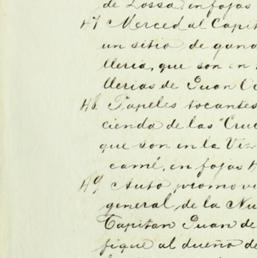 de Lossa, en fojas
47 Merced al Capi
un sitio de gana
lleria, que son en
llerias de Juan O
48 Papeles tocantes
cienda de las Cruc
que son en la Viz
caine, en fojas
49 Auto promovi
general, de la Nu
Capitan Juan de
fique al dueño de